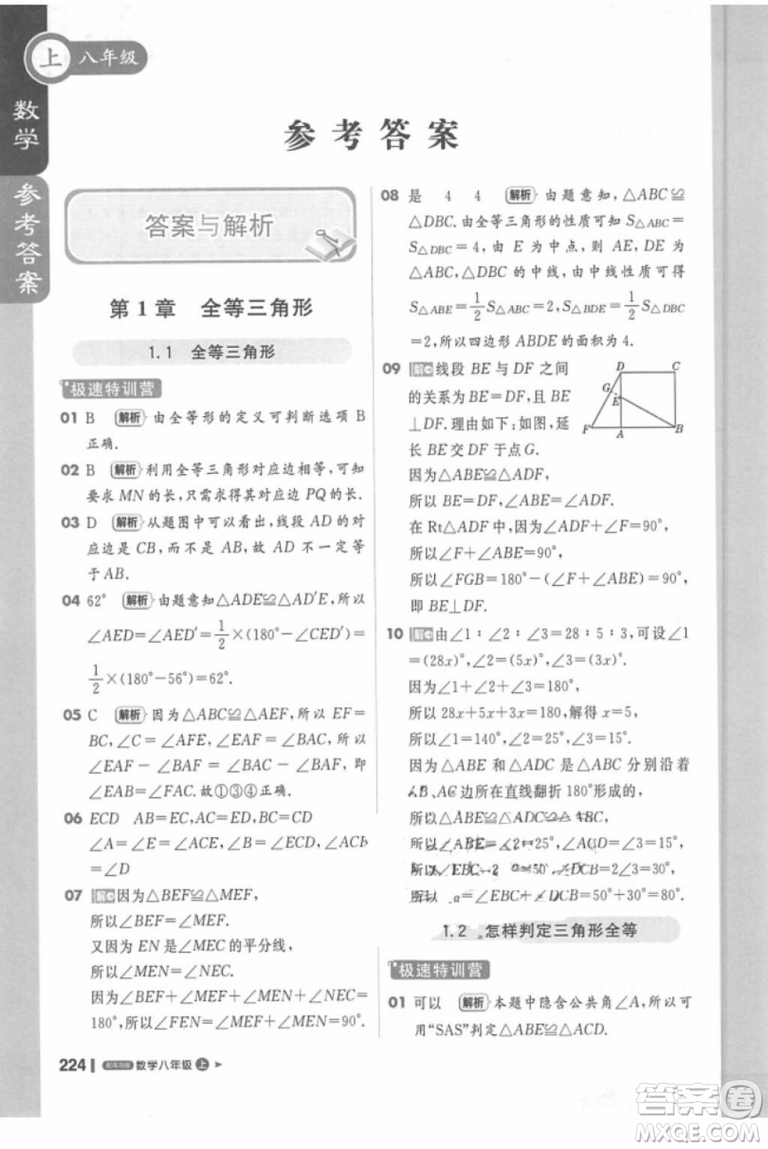 上 八年级
数学
参考答案
参考答案
答案与解析
第1章 全等三角形
1.1 全等三角形
极速特训营
01 B 解析 由全等形的定义可判断选项 B
正确.
02 B 解析 利用全等三角形对应边相等,可知
要求 MN 的长,只需求得线段 PQ 的长.
03 D 解析 从题图中可以看出,线段 AD 的对
应边是 CB,而不是 BC,故错误的结论是 AD
等于 AB.
04 62° 解析 由题意知△ADE≌△AD′E,所以
∠AED=∠AED′=1/2×(180°-∠CED′)=
1/2×(180°-56°)=62°.
05 C 解析 因为△ABC≌△AEF,所以 EF=
BC,∠C=∠AFE,∠EAF=∠BAC,所以
∠EAF-∠BAF=∠BAC-∠BAF,即
∠EAB=∠FAC.故①③④正确.
06 ECD AB=EC,AC=ED,BC=CD
∠A=∠E=∠ACE,∠B=∠ECD,∠ACB
=∠D
07 解 因为△BEF≌△MEF,
所以∠BEF=∠MEF.
又因为 EN 是∠MEC 的平分线,
所以∠MEN=∠NEC.
因为∠BEF+∠MEF+∠MEN+∠NEC=
180°,所以∠NEF=∠MEF+∠MEN=90°.
08 是 4 4 解析 由题意知,△ABC≌
△DBC.由全等三角形的性质可知
S△ABC=S△DBC,由 E 为中点,则 AE,DE 为
△ABC,△DBC 的中线,由中线性质可得
S△ABE=1/2S△ABC=2,S△BDE=1/2S△DBC
=2,所以四边形 ABDE 的面积为 4.
09 解 线段 BE 与 DF 之间
的关系为 BE=DF,BE
⊥DF.理由如下:如图,延
长 BE 交 DF 于点 G.
D C
G
E
F A B
因为△ABE≌△ADF,
所以 BE=DF,∠ABE=∠ADF.
在 Rt△ADF 中,因为∠ADF+∠F=90°,
所以∠F+∠ABE=90°,
所以∠FGB=180°-(∠F+∠ABE)=90°,
即 BE⊥DF.
10 解 由∠1∶∠2∶∠3=28∶5∶3,可设∠1
=(28x)°,∠2=(5x)°,∠3=(3x)°.
因为∠1+∠2+∠3=180°,
所以 28x+5x+3x=180,解得 x=5,
所以∠1=140°,∠2=25°,∠3=15°.
因为△ABE 和△ADC 是△ABC 分别沿着
AB,AC 所在的直线翻折 180°形成的,
所以△ABE≌△ADC≌△ABC,
所以∠ABE=∠2=25°,∠ACB=
所以∠EBC=2∠2=50°,∠DCB=2∠3=30°,
所以∠α=∠EBC+∠DCB=50°+30°=80°.
1.2 怎样判定三角形全等
极速特训营
01 可以 解析 本题中隐含公共角∠A,所以可
用“SAS”判定△ABE≌△ACD.
224 数学八年级 上
答案圈
MXQE.COM